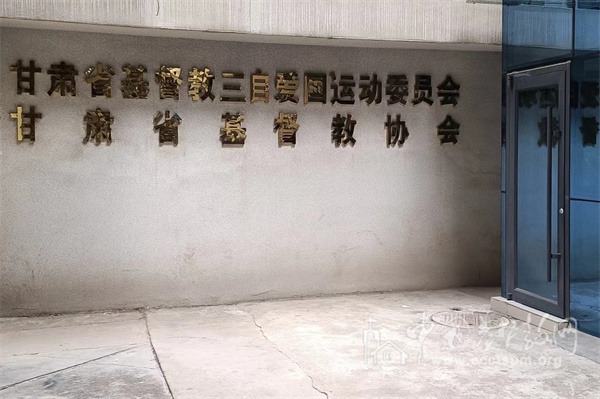 甘肃省基督教三自爱国运动委员会
甘肃省基督教协会